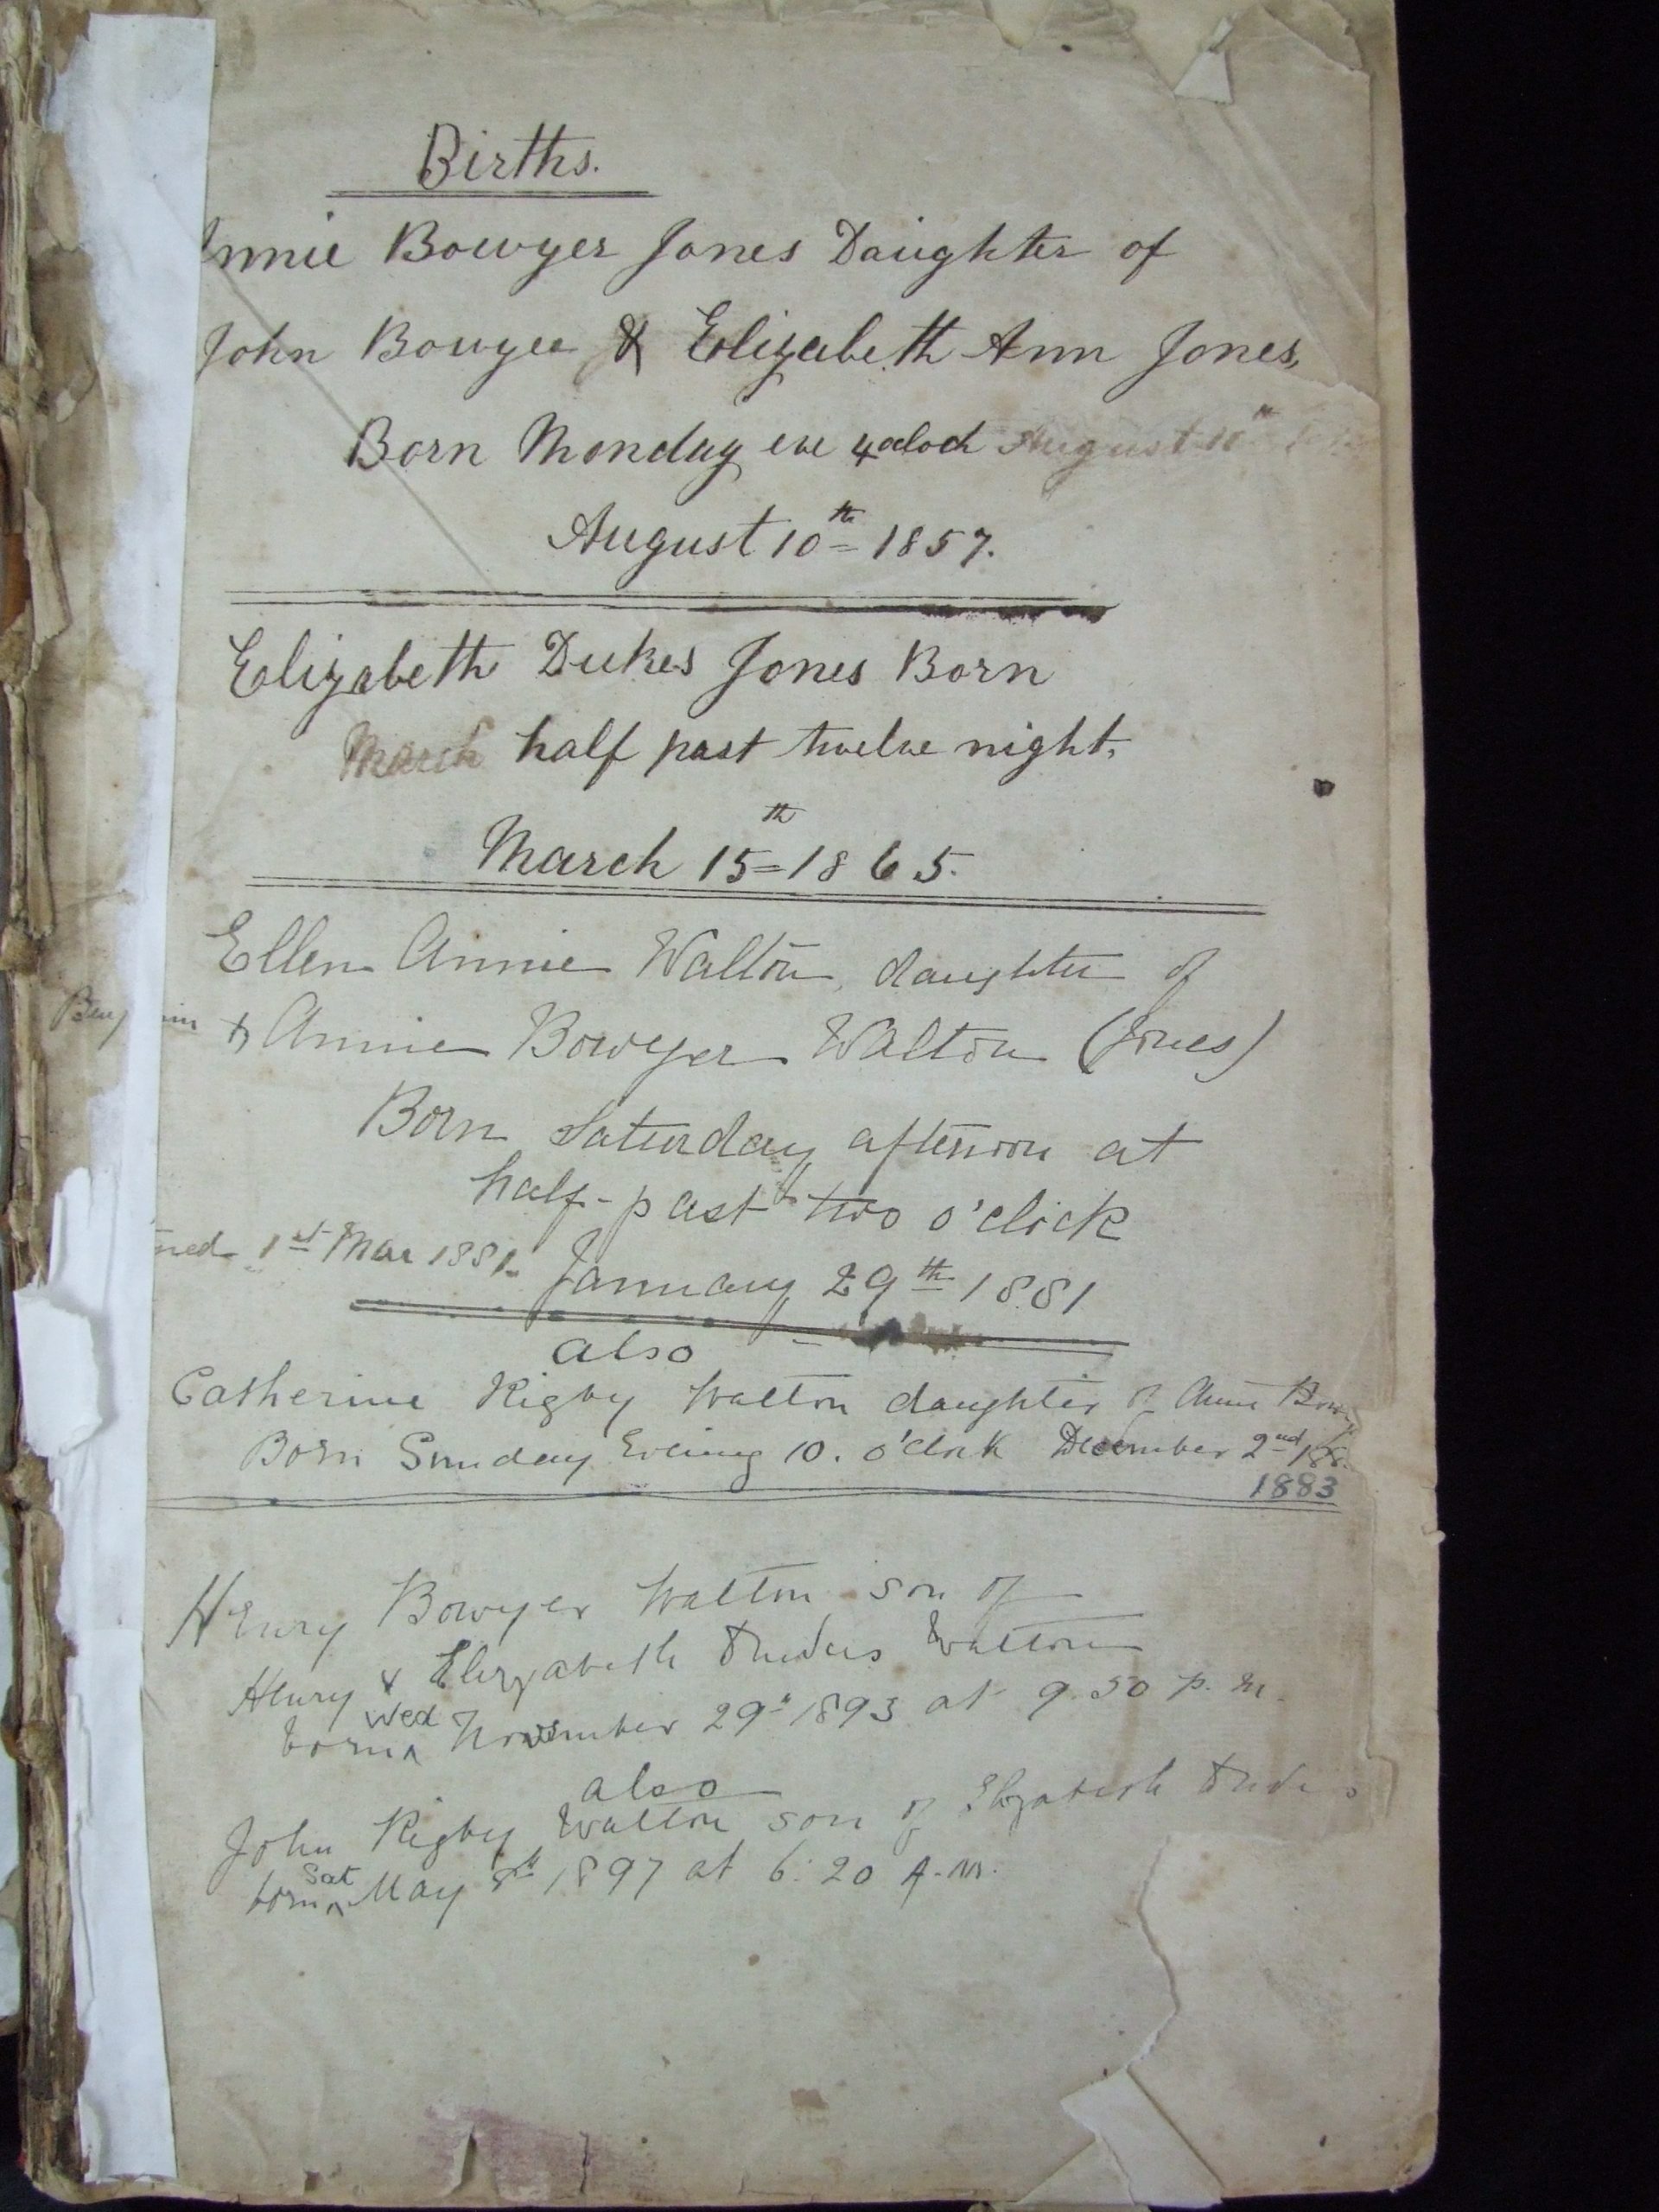 Births.
nnie Bowyer Jones Daughter of
John Bowyer & Elizabeth Ann Jones,
Born Monday eve 4 oclock August 10th
August 10th 1857.
Elizabeth Dukes Jones Born
March half past twelve night,
March 15th 1865.
Ellen Annie Walton, daughter of
& Annie Bowyer Walton (Jones)
Born Saturday afternoon at
half-past two o'clock
1st Mar 1881. January 29th 1881
also
Catherine Rigby Walton daughter of Annie Bowy
Born Sunday Evening 10. o'clock December 2nd 188
1883
Henry Bowyer Walton son of
Henry & Elizabeth Dukes Walton
born Wed November 29th 1893 at 9.50 p.m.
also
John Rigby Walton son of Elizabeth
born Sat May 8th 1897 at 6:20 A.M.